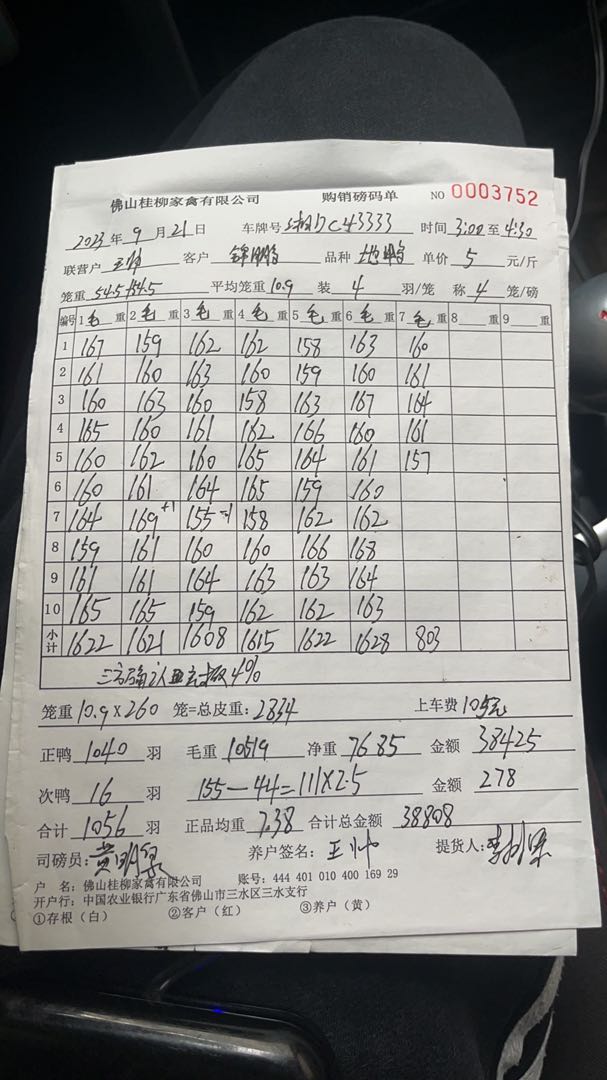 佛山桂柳家禽有限公司 购销磅码单 NO 0003752
2023年9月21日 车牌号 C43333 时间 3:00至4:30
联营户 王帅 客户 品种 单价 5 元/斤
笼重 54.5 54.5 平均笼重 10.9 装 4 羽/笼 称 4 笼/磅
编号 1毛重 2毛重 3毛重 4毛重 5毛重 6毛重 7毛重 8重 9重
1 167 159 162 162 158 163 160
2 161 160 163 160 159 160 161
3 160 163 160 158 163 167 164
4 165 160 161 162 166 160 161
5 160 162 160 165 164 161 157
6 160 161 164 165 159 160
7 164 169+1 155-1 158 162 162
8 159 161 160 160 166 168
9 161 161 164 163 163 164
10 165 165 159 162 162 163
小计 1622 1621 1608 1615 1622 1628 803
三方确认 4%
笼重 10.9×260 笼=总皮重: 2834 上车费 105元
正鸭 1040 羽 毛重 10519 净重 7685 金额 38425
次鸭 16 羽 155-44=111×2.5 金额 278
合计 1056 羽 正品均重 7.38 合计总金额 38808
司磅员: 黄明 养户签名: 王帅 提货人:
户 名: 佛山桂柳家禽有限公司 账号: 444 401 010 400 169 29
开户行: 中国农业银行广东省佛山市三水区三水支行
①存根（白） ②客户（红） ③养户（黄）